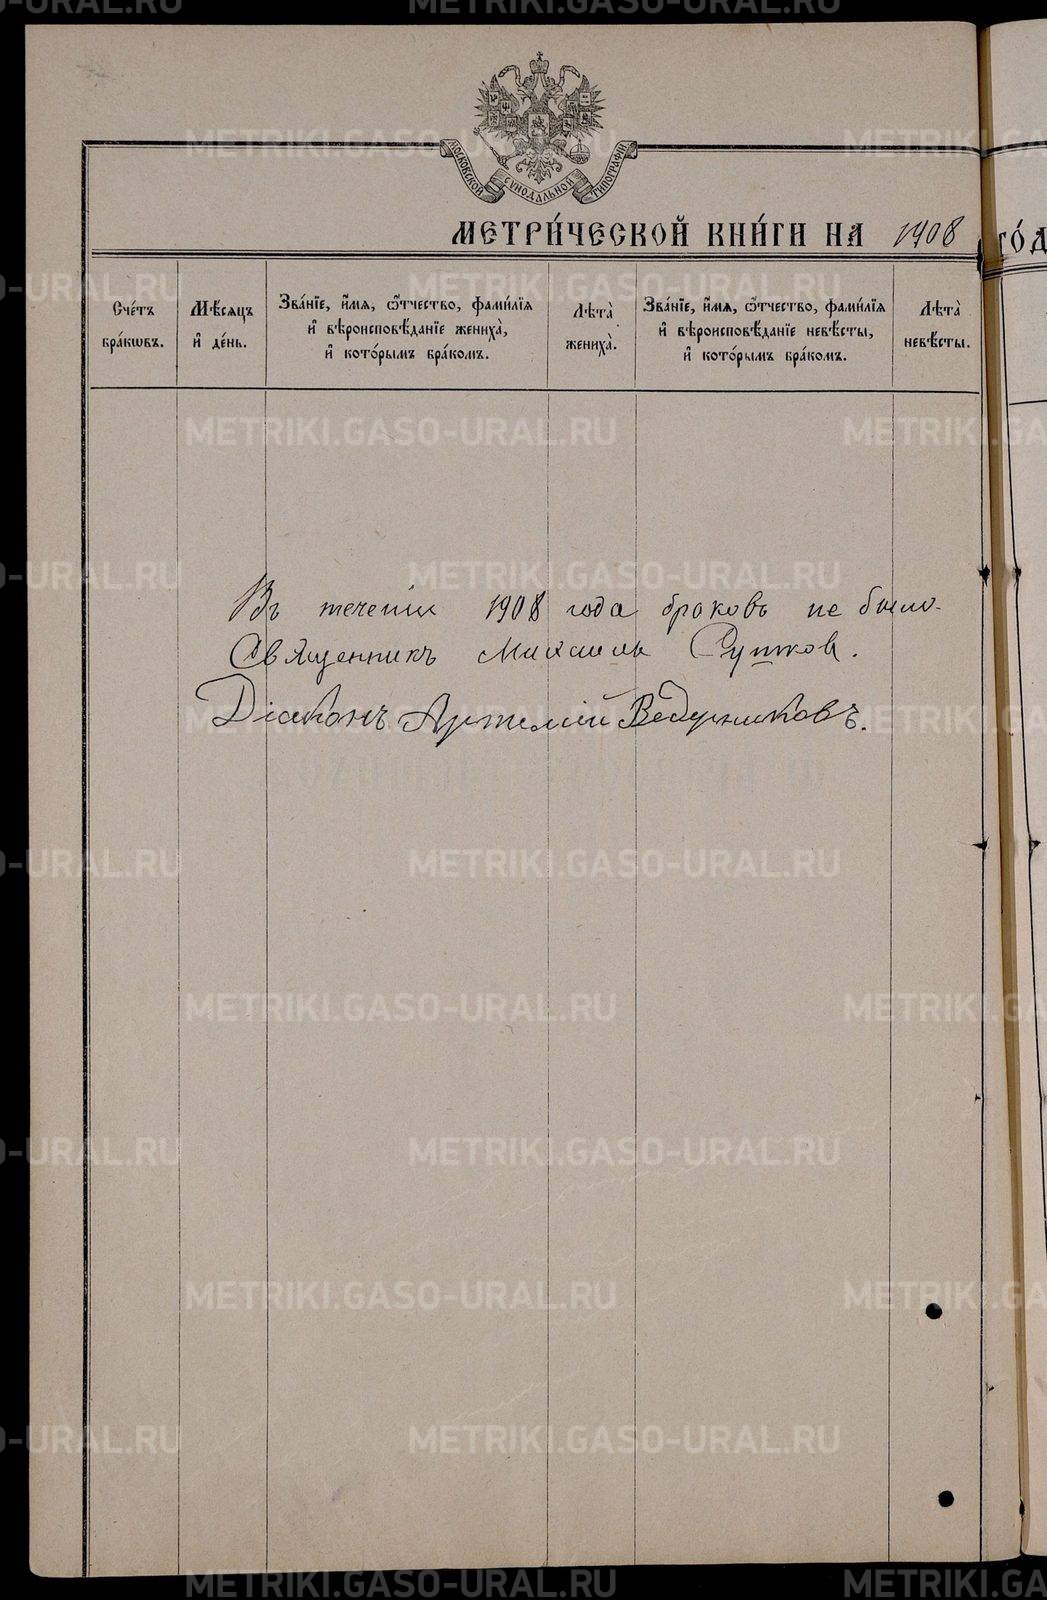 МОСКОВСКОЙ СУНОДАЛЬНОЙ ТИПОГРАФІИ
МЕТРИ́ЧЕСКОЙ КНИ́ГИ НА 1908 ГО́Д
Сче́тъ бра́кѡвъ.
Мѣ́сяцъ и҆ де́нь.
Зва́нїе, и҆́мѧ, ѻ҆́тчество, фами́лїѧ
и҆ вѣроисповѣ́данїе жениха̀,
и҆ кото́рымъ бра́комъ.
Лѣта̀ жениха̀.
Зва́нїе, и҆́мѧ, ѻ҆́тчество, фами́лїѧ
и҆ вѣроисповѣ́данїе невѣ́сты,
и҆ кото́рымъ бра́комъ.
Лѣта̀ невѣ́сты.
Въ теченіи 1908 года браковъ не было.
Священникъ Михаилъ
Діаконъ Артемій Ведерниковъ.
METRIKI.GASO-URAL.RU